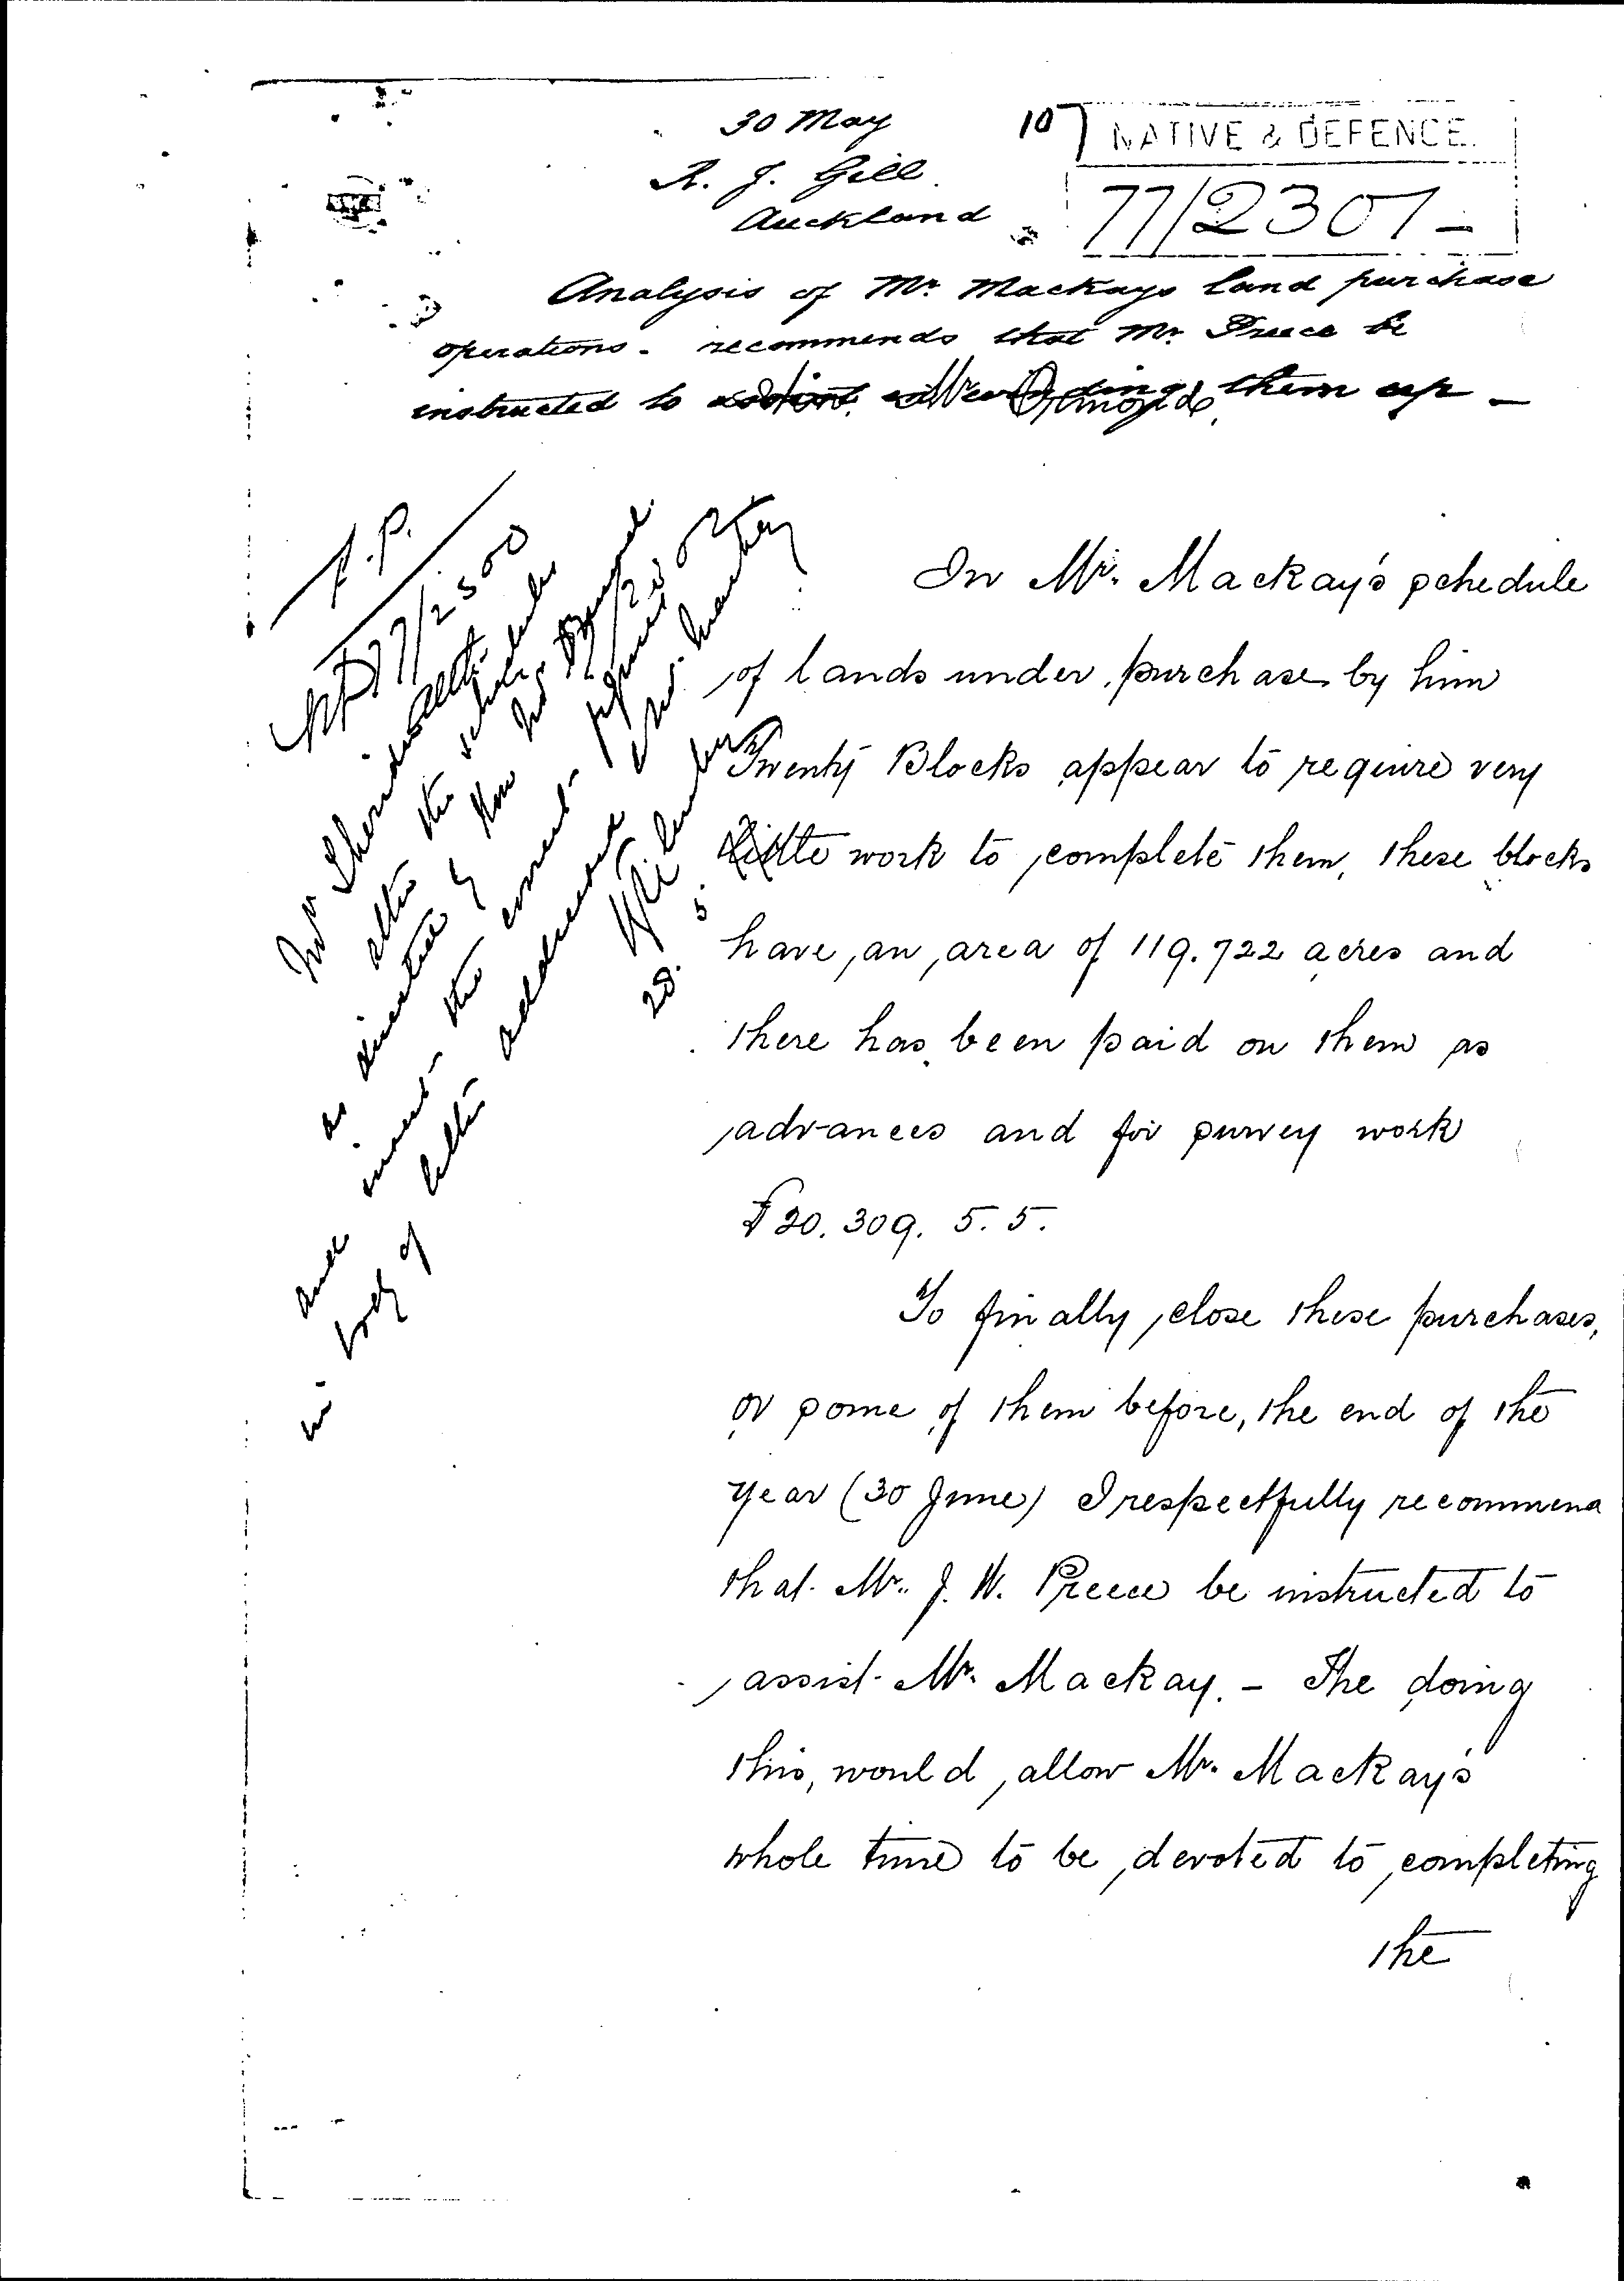 30 May
R. J. Gill
Auckland
107
NATIVE & DEFENCE.
77/2307-
Analysis of Mr. Mackays land purchase
operations - recommends that Mr. Preece be
instructed to assist in winding them up -
Mr Ormonde
In Mr. Mackay's schedule
of lands under purchase by him
Twenty Blocks appear to require very
little work to complete them, these blocks
have an area of 119.722 acres and
there has been paid on them as
advances and for survey work
£20.309. 5. 5.
To finally close these purchases,
or some of them before the end of the
year (30 June) I respectfully recommend
that Mr. J. W. Preece be instructed to
assist Mr. Mackay. - The doing
this, would allow Mr. Mackay's
whole time to be devoted to completing
the
77/2300
Mr Sheridan
alter the
as directed &
and the
letter addressed
in body of
28. 5.